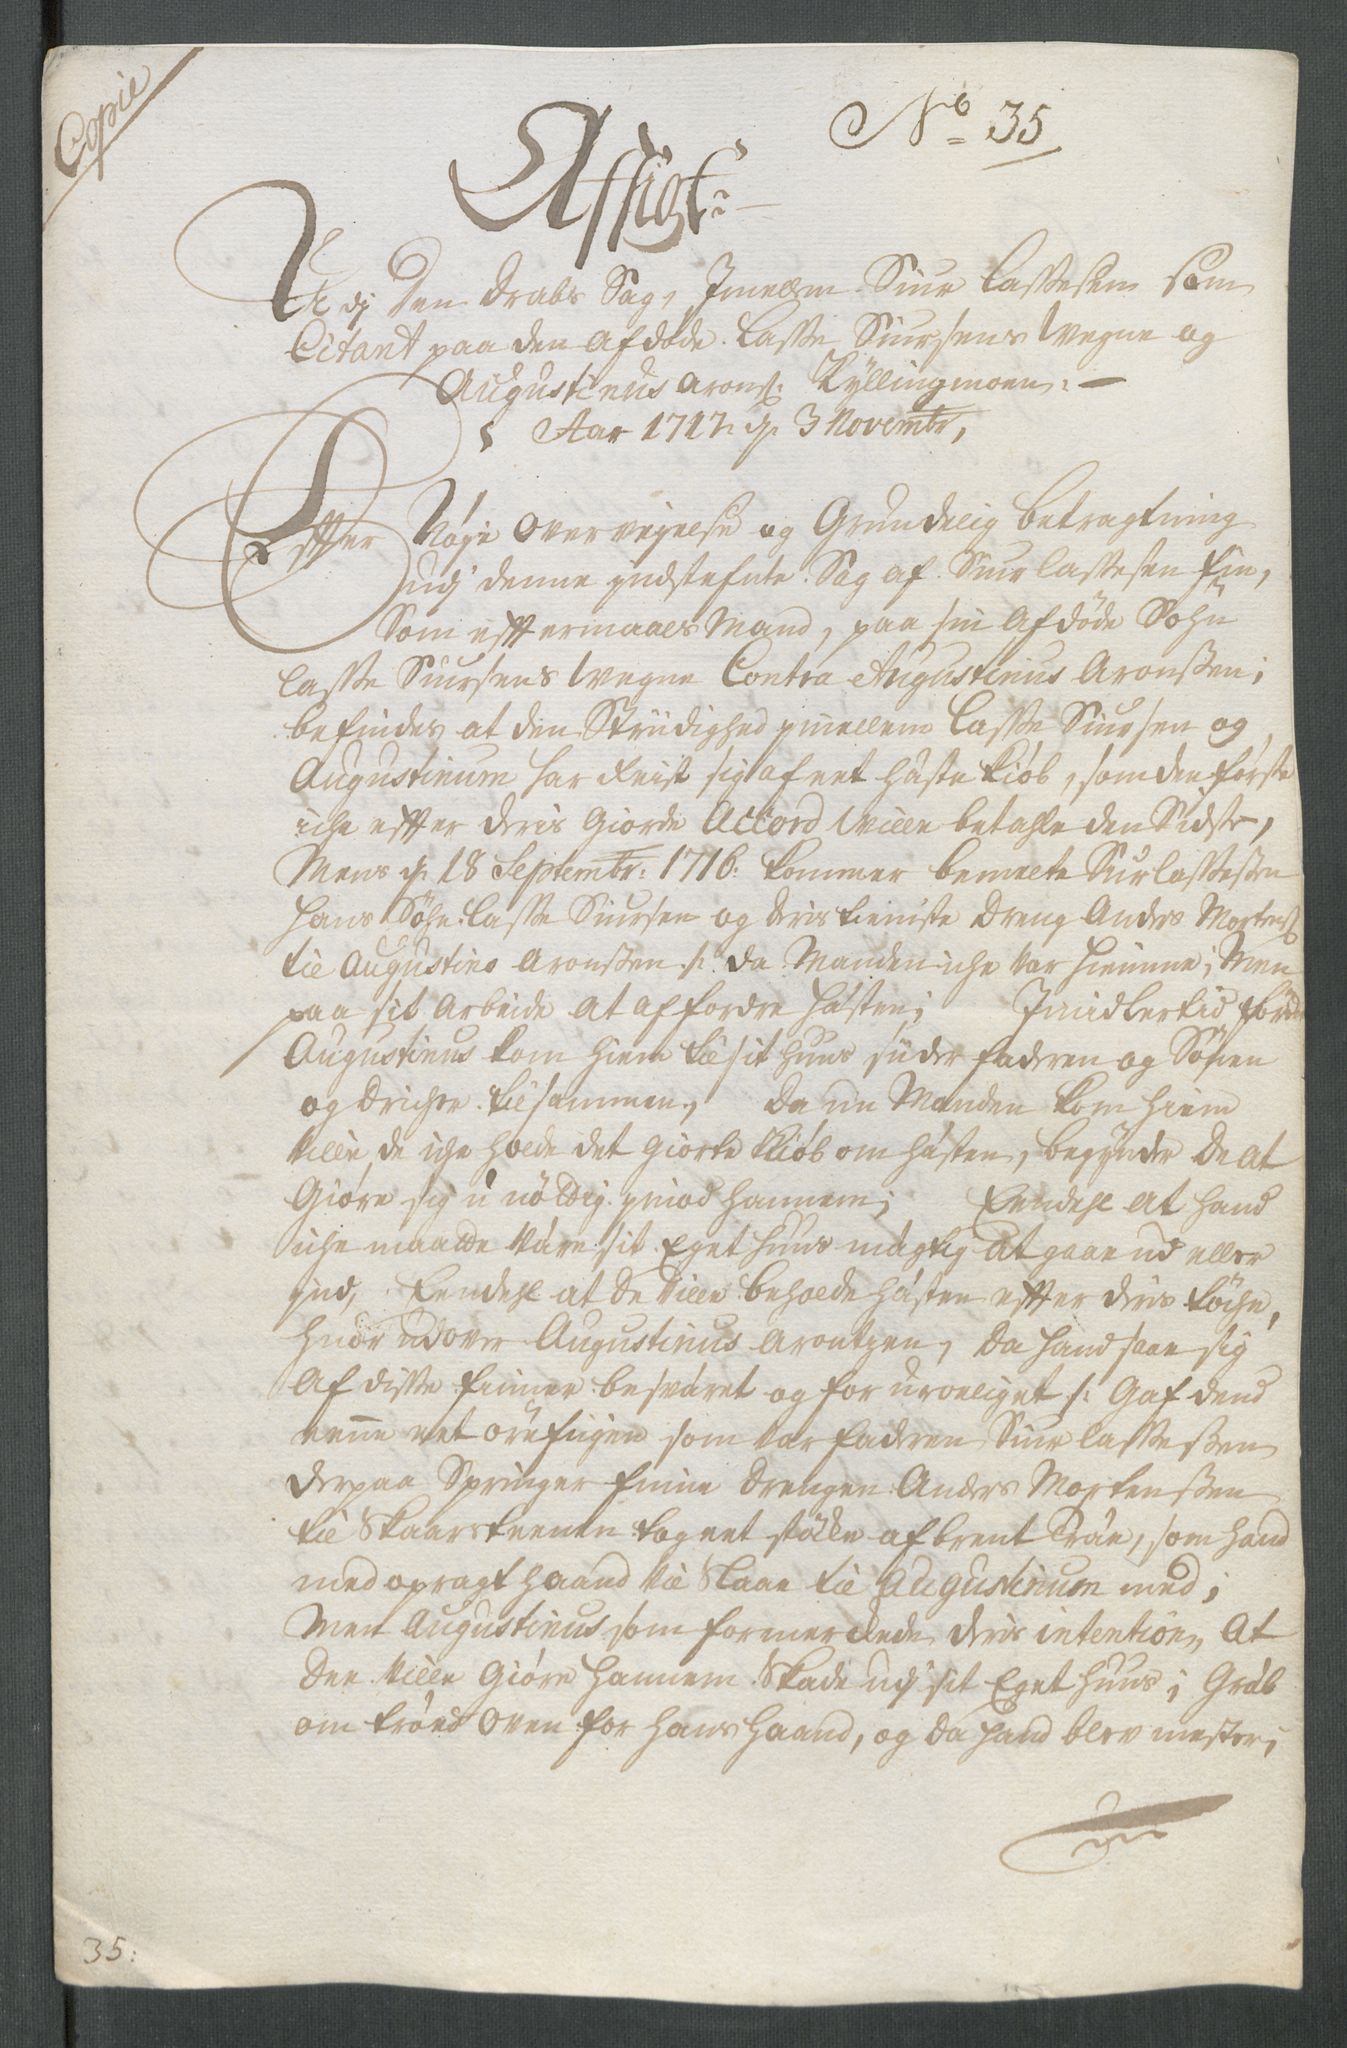 Copie
No 35
Affsigt
Udj den drabs Sag, Imellem Siur Lassesen som
Citant paa den afdøde Lasse Siursens Wegne og
Augustinus Arons: Kyllingmoen:
Aar 1717 d. 3 Novembr,
Effter Nøye overveyelse og Grundelig betragtning
udj denne indstefnte Sag af Siur Lassesen Fin,
Som efftermaals Mand, paa sin afdøde Søhn
Lasse Siursens Wegne Contra Augustinus Aronssen;
befindes at den Striidighed imellem Lasse Siursen og
Augustinum har Reist sig af eet hæste kiøb, som den første
iche effter deris Giorde Accord wille betahle den Sidste,
Mens d. 18 Septembr: 1716: kommer bemelte Siur Lassessen
hans Søhn Lasse Siursen og deris tieniste dreng Anders Mortens:
til Augustino Aronssen /: da Manden iche var hiemme; Men
paa sit Arbeide at affordre hæsten; Imidlertid førend
Augustinus kom hiem til sit huus sider faderen og Sønen
og dricher tilsammen, da nu Manden kom hiem
Ville de iche holde det giorte kiøb om hæsten, begynder de at
Giøre sig unøttig imod hannem; Eendehl at hand
iche maatte være sit Eget huus mægtig at gaae ud eller
ind, Eendehl at de Ville beholde hæsten effter deris tøche,
hvorudover Augustinus Arontzen, da hand saae sig
Af disse finner besværet og foruroeliget /: Gaf dend
eene eet ørefiigen som var faderen Siur Lassessen
derpaa Springer finne drengen Anders Mortenssen
til Skaarsteenen tog eet støche af brent Træe, som hand
med opragt haand vil Slaae til Augustinum med;
Men Augustinus som formerckede deris intention, At
den Ville Giøre hannem Skade udj sit Eget huus; Greb
om træed oven for hans haand, og da hand blev mester,
35: